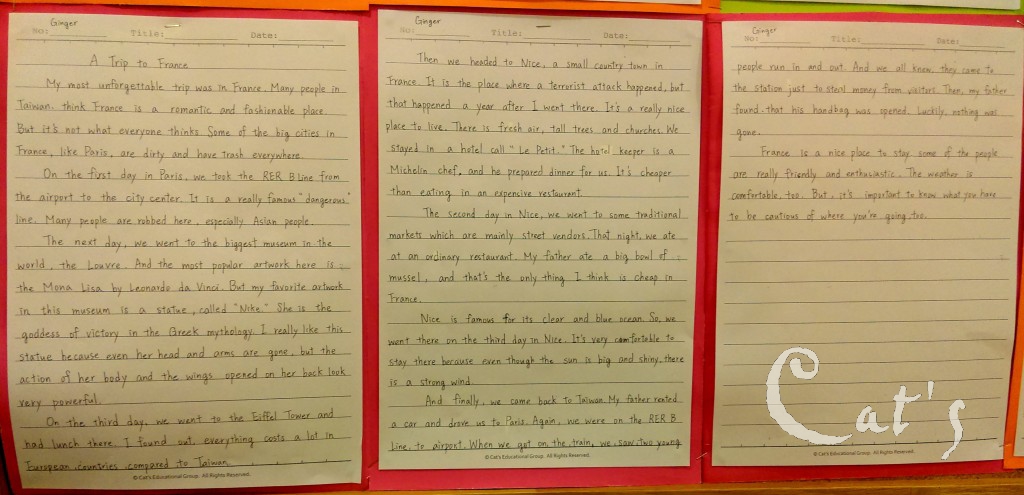 Ginger
No: Title: Date:
A Trip to France
My most unforgettable trip was in France. Many people in
Taiwan think France is a romantic and fashionable place.
But it's not what everyone thinks Some of the big cities in
France, like Paris, are dirty and have trash everywhere.
On the first day in Paris, we took the RER B Line from
the airport to the city center. It is a really famous "dangerous"
line. Many people are robbed here, especially Asian people.
The next day, we went to the biggest museum in the
world, the Louvre. And the most popular artwork here is
the Mona Lisa by Leonardo da Vinci. But my favorite artwork
in this museum is a statue, called "Nike." She is the
goddess of victory in the Greek mythology. I really like this
statue because even her head and arms are gone, but the
action of her body and the wings opened on her back look
very powerful.
On the third day, we went to the Eiffel Tower and
had lunch there. I found out everything costs a lot in
European countries compared to Taiwan.
© Cat's Educational Group. All Rights Reserved.
Ginger
No: Title: Date:
Then we headed to Nice, a small country town in
France. It is the place where a terrorist attack happened, but
that happened a year after I went there. It's a really nice
place to live. There is fresh air, tall trees and churches. We
stayed in a hotel call "Le Petit." The hotel keeper is a
Michelin chef, and he prepared dinner for us. It's cheaper
than eating in an expencive restaurant.
The second day in Nice, we went to some traditional
markets which are mainly street vendors. That night, we ate
at an ordinary restaurant. My father ate a big bowl of
mussel, and that's the only thing I think is cheap in
France.
Nice is famous for its clear and blue ocean. So, we
went there on the third day in Nice. It's very comfortable to
stay there because even though the sun is big and shiny, there
is a strong wind.
And finally, we come back to Taiwan. My father rented
a car and drove us to Paris. Again, we were on the RER B
Line, to airport. When we got on the train, we saw two young
© Cat's Educational Group. All Rights Reserved.
Ginger
No: Title: Date:
people run in and out. And we all knew they came to
the station just to steal money from visitors. Then, my father
found that his handbag was opened. Luckily, nothing was
gone.
France is a nice place to stay some of the people
are really friendly and enthusiastic. The weather is
comfortable, too. But, it's important to know what you have
to be cautious of where you're going too.
© Cat's Educational Group. All Rights Reserved.
Cat's